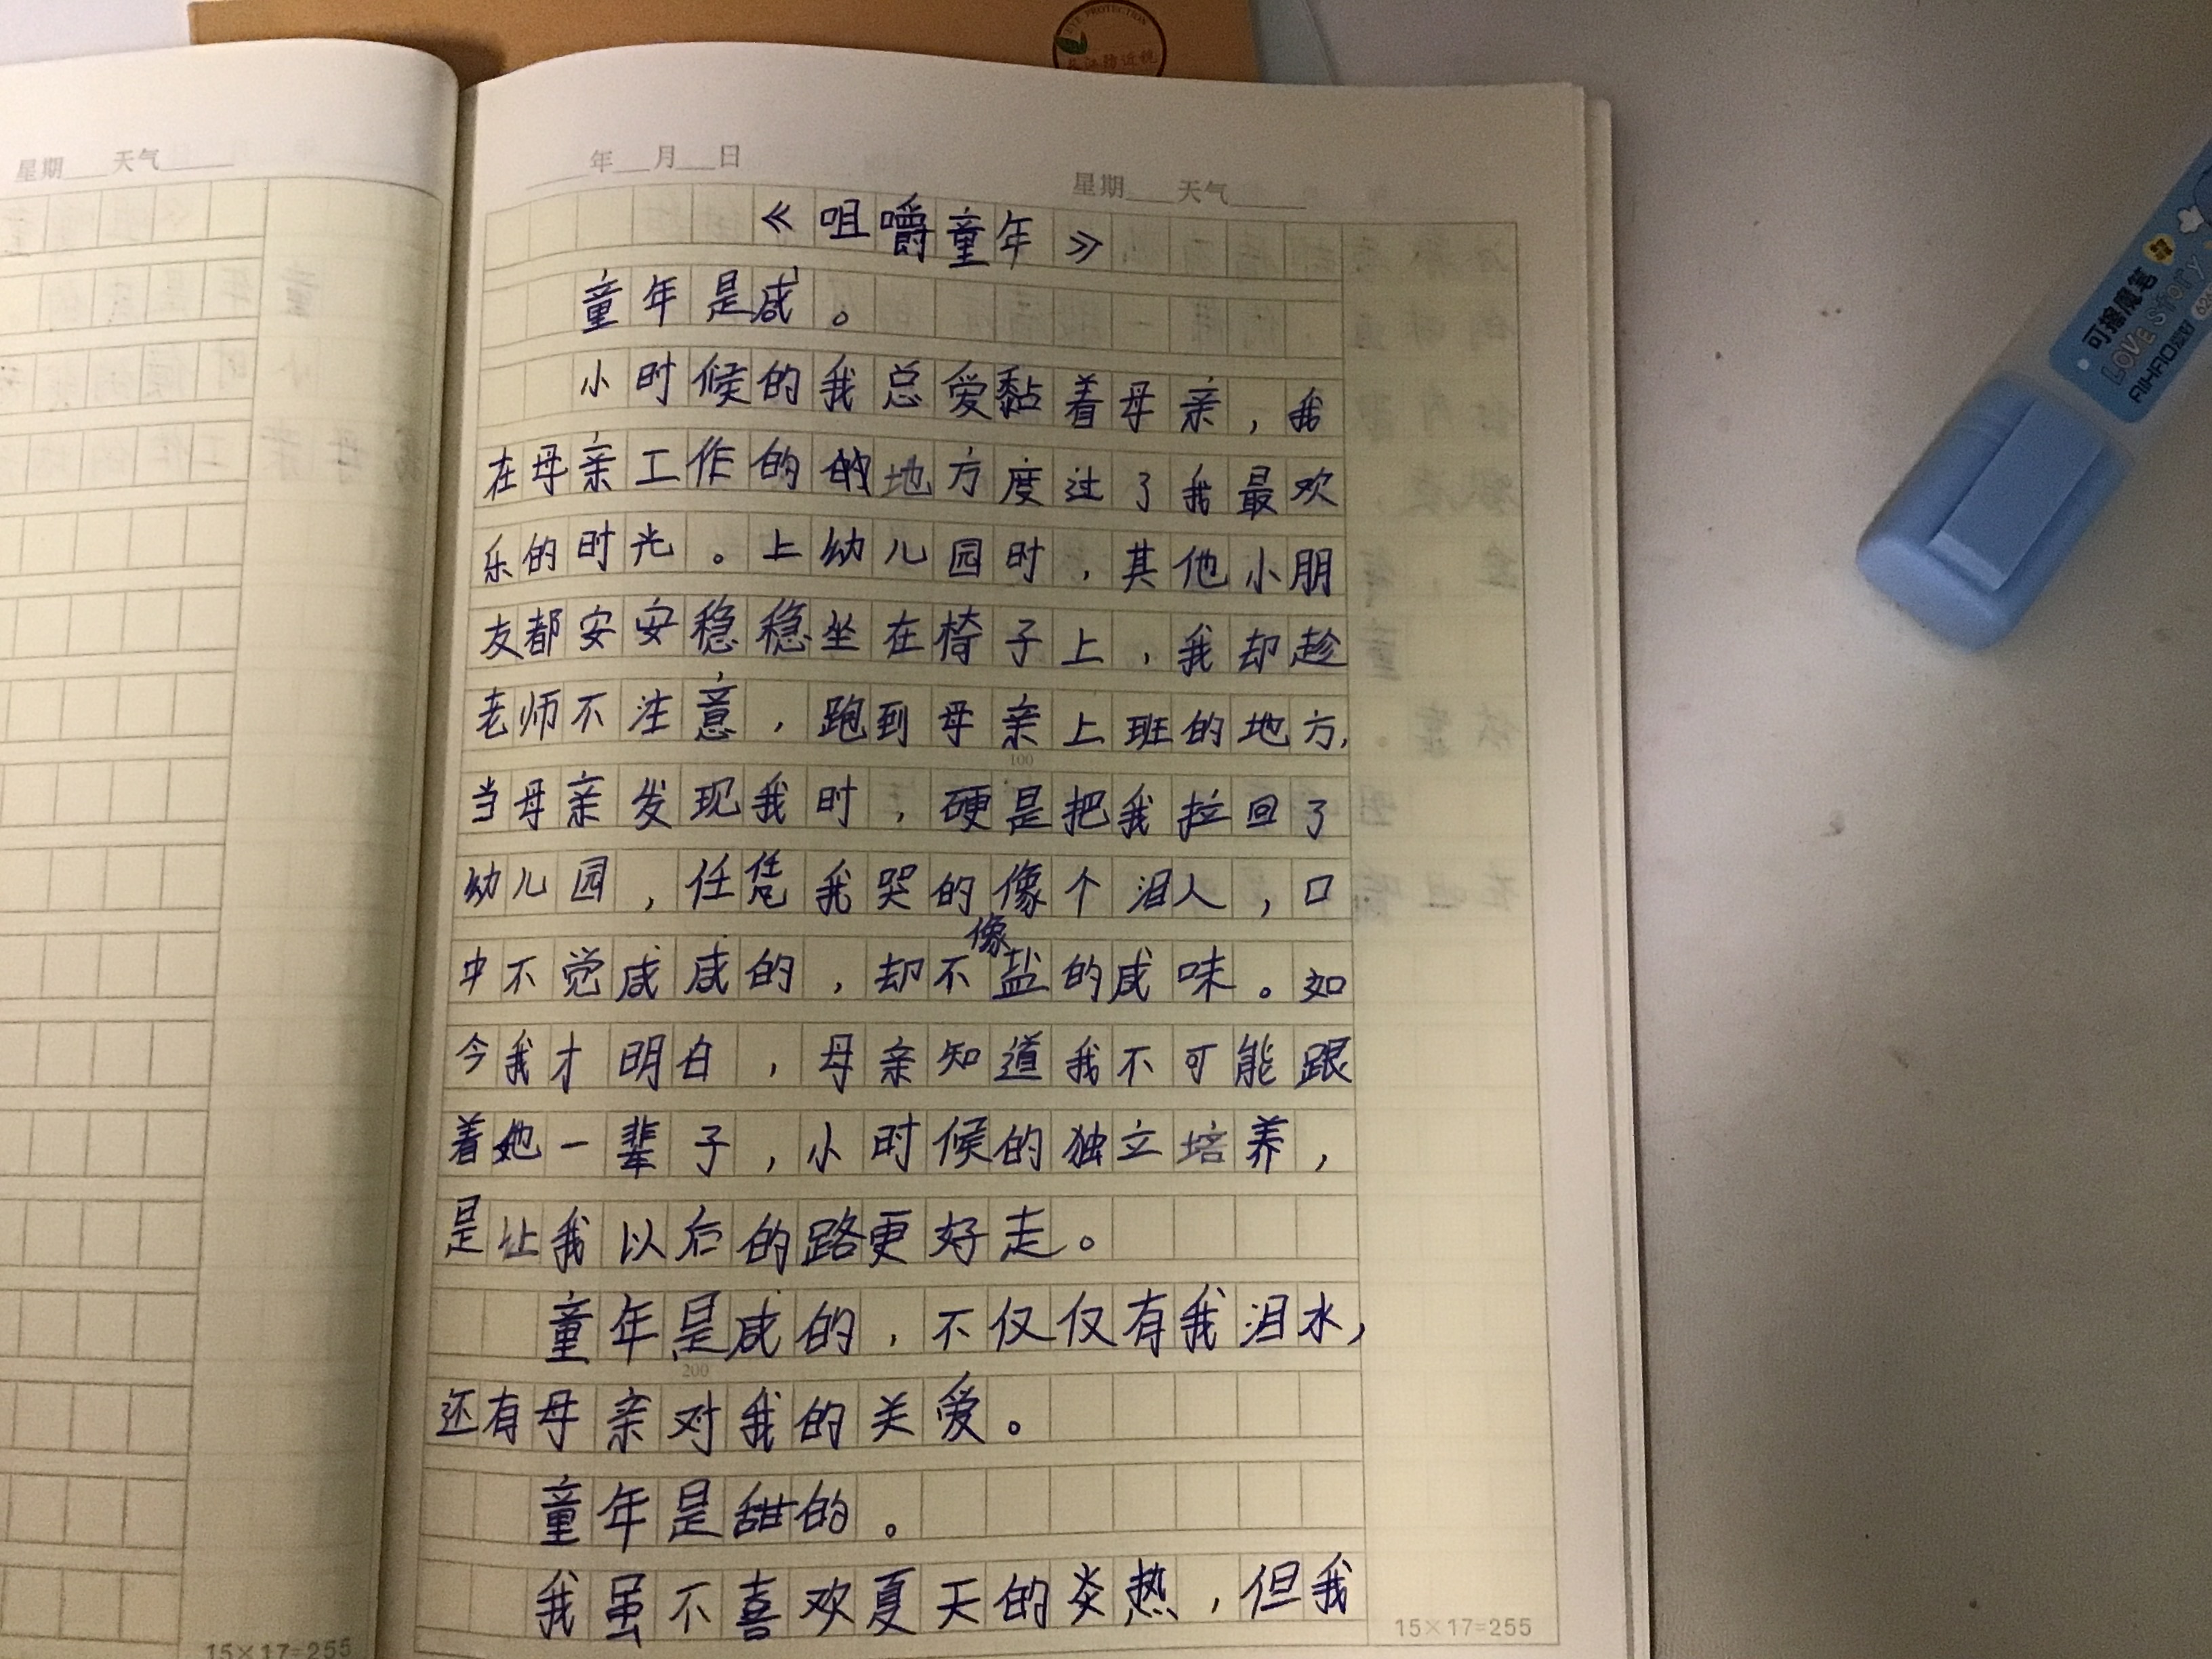 EYE PROTECTION
年 月 日
星期 天气
星期 天气
《咀嚼童年》
童年是咸。
小时候的我总爱黏着母亲，我
在母亲工作的的地方度过了我最欢
乐的时光。上幼儿园时，其他小朋
友都安安稳稳坐在椅子上，我却趁
老师不注意，跑到母亲上班的地方，
100
当母亲发现我时，硬是把我拉回了
幼儿园，任凭我哭的像个泪人，口
中不觉咸咸的，却不像盐的咸味。如
今我才明白，母亲知道我不可能跟
着她一辈子，小时候的独立培养，
是让我以后的路更好走。
童年是咸的，不仅仅有我泪水，
200
还有母亲对我的关爱。
童年是甜的。
我虽不喜欢夏天的炎热，但我
15×17=255
15×17=255
可擦魔笔
LOVE Story
AIHAO爱好